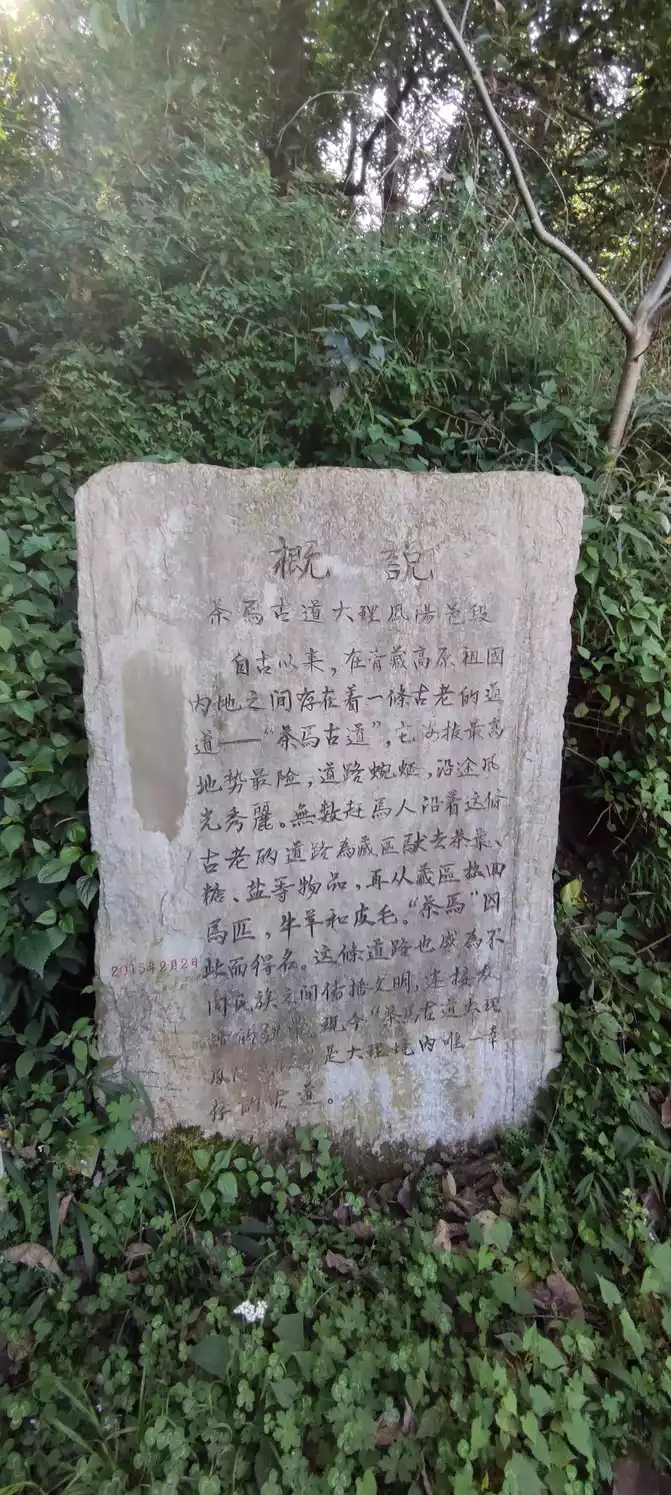 概 説
茶馬古道大理鳳陽邑段
自古以来，在青藏高原祖國
内地之间存在着一條古老的道
道——“茶馬古道”，它海拔最高
地势最险，道路蜿蜒，沿途风
光秀麗。無数赶馬人沿着这條
古老的道路為藏區馱去茶葉、
糖、盐等物品，再从藏區换回
馬匹，牛羊和皮毛。“茶馬”因
此而得名。这條道路也成為不
同民族之间传播文明，连接友
2015年2月2日
现今“茶馬古道大理
是大理境内唯一幸
存的古道。